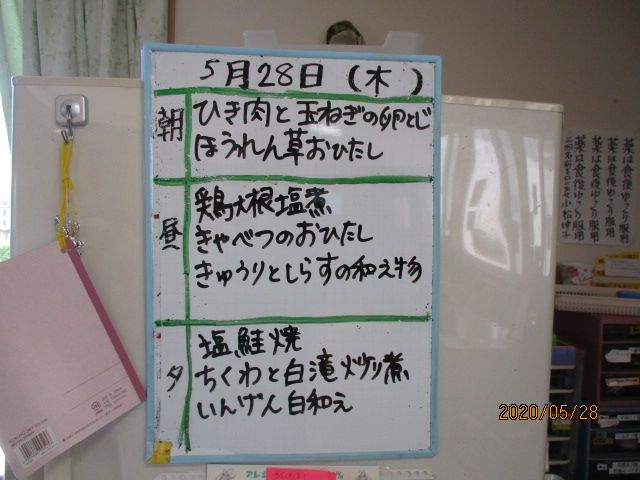 5月28日(木)
朝
ひき肉と玉ねぎの卵とじ
ほうれん草おひたし
昼
鶏大根塩煮
きゃべつのおひたし
きゅうりとしらすの和え物
夕
塩鮭焼
ちくわと白滝炒り煮
いんげん白和え
薬は食後ゆっくり服用
薬は食後ゆっくり服用
薬は食後ゆっくり服用
薬は食後ゆっくり服用
2020/05/28